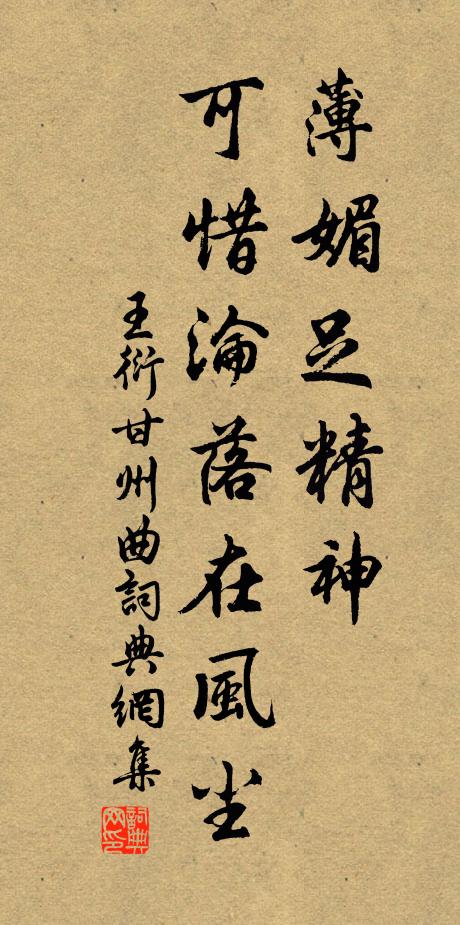 薄媚足精神
可惜淪落在風尘
王衍甘州曲詞典網集
詞典网印